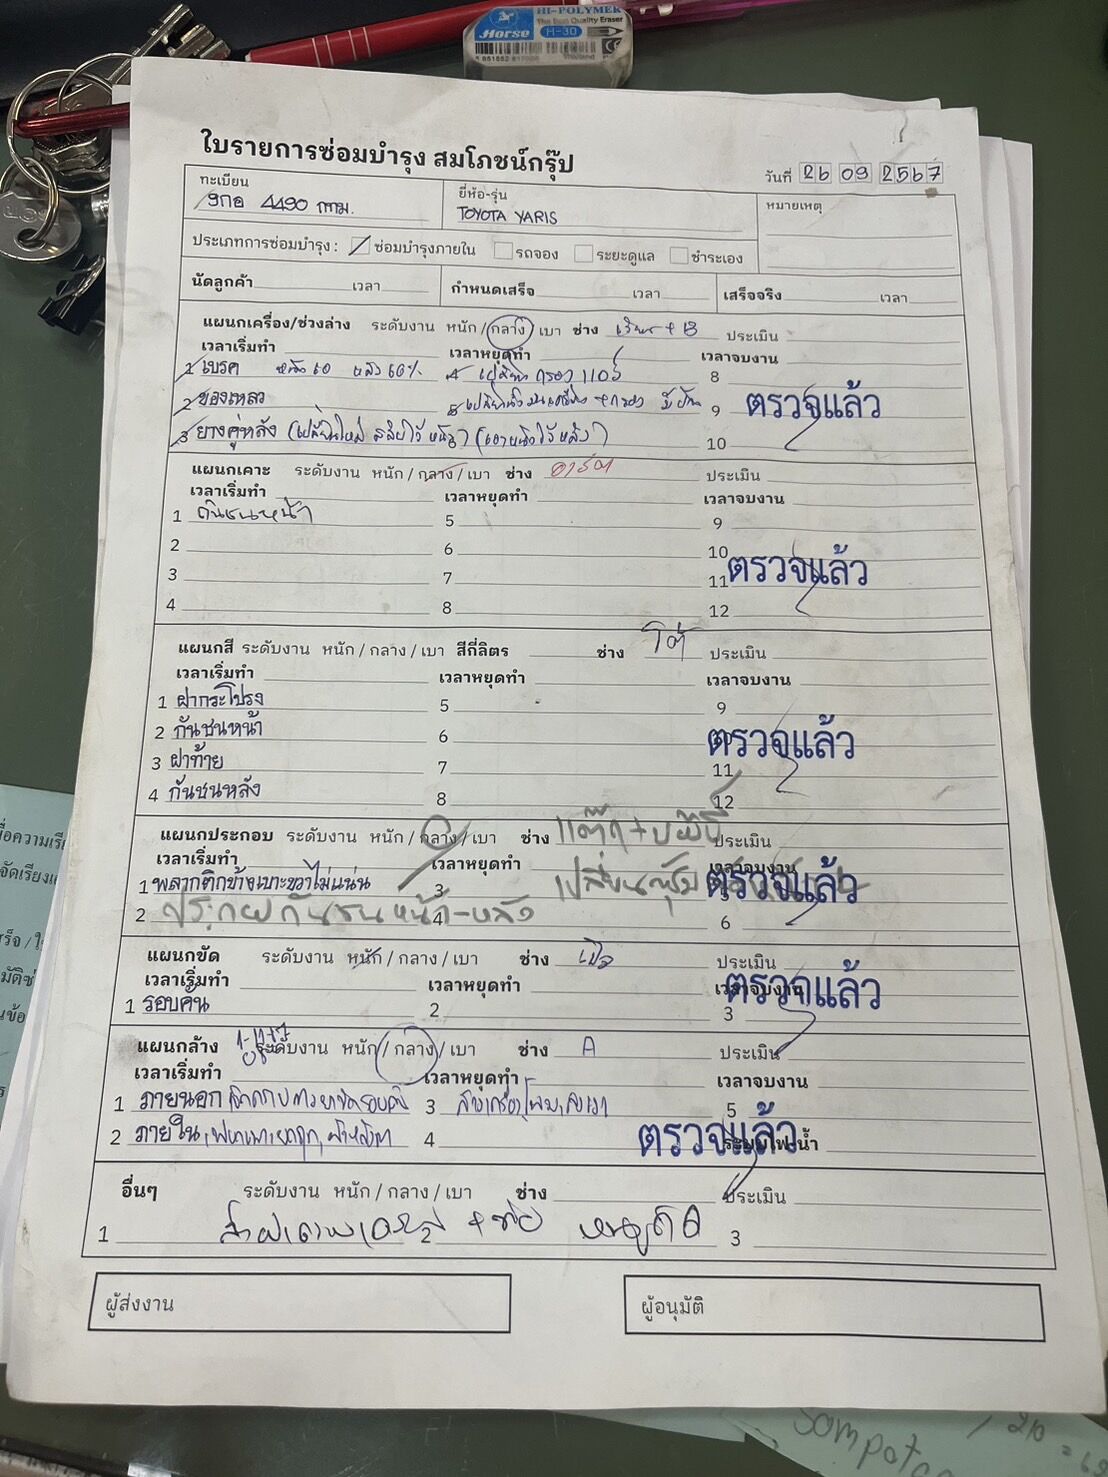 Horse
HI-POLYMER
The Best Quality Eraser
H-30
Thailand
ใบรายการซ่อมบำรุง สมโภชน์กรุ๊ป
วันที่ 26 09 2567
ทะเบียน
9กอ 4490 กทม.
ยี่ห้อ-รุ่น
TOYOTA YARIS
หมายเหตุ
ประเภทการซ่อมบำรุง : ซ่อมบำรุงภายใน รถจอง ระยะดูแล ชำระเอง
นัดลูกค้า เวลา กำหนดเสร็จ เวลา เสร็จจริง เวลา
แผนกเครื่อง/ช่วงล่าง ระดับงาน หนัก / กลาง / เบา ช่าง ประเมิน
เวลาเริ่มทำ เวลาหยุดทำ เวลาจบงาน
1 เบรค หน้า 60 หลัง 60% 4 เปลี่ยน กรอง แอร์ 8
2 ของเหลว 5 9
3 ยางคู่หลัง (เปลี่ยนใหม่ สลับไว้ หน้า) 10
ตรวจแล้ว
แผนกเคาะ ระดับงาน หนัก / กลาง / เบา ช่าง ประเมิน
เวลาเริ่มทำ เวลาหยุดทำ เวลาจบงาน
1 กันชนหน้า 5 9
2 6 10
3 7 11
4 8 12
ตรวจแล้ว
แผนกสี ระดับงาน หนัก / กลาง / เบา สีกี่ลิตร ช่าง โต้ ประเมิน
เวลาเริ่มทำ เวลาหยุดทำ เวลาจบงาน
1 ฝากระโปรง 5 9
2 กันชนหน้า 6
3 ฝาท้าย 7 11
4 กันชนหลัง 8 12
ตรวจแล้ว
แผนกประกอบ ระดับงาน หนัก / กลาง / เบา ช่าง ประเมิน
เวลาเริ่มทำ เวลาหยุดทำ เวลาจบงาน
1 พลากติกข้างเบาะขวาไม่แน่น 3 5
2 ประกอบกันชน หน้า-หลัง 4 6
ตรวจแล้ว
แผนกขัด ระดับงาน หนัก / กลาง / เบา ช่าง ประเมิน
เวลาเริ่มทำ เวลาหยุดทำ เวลาจบงาน
1 รอบคัน 2 3
ตรวจแล้ว
แผนกล้าง ระดับงาน หนัก / กลาง / เบา ช่าง A ประเมิน
เวลาเริ่มทำ เวลาหยุดทำ เวลาจบงาน
1 ภายนอก 3 5
2 ภายใน 4 ระบบไฟ-น้ำ
ตรวจแล้ว
อื่นๆ ระดับงาน หนัก / กลาง / เบา ช่าง ประเมิน
1 2 3
ผู้ส่งงาน
ผู้อนุมัติ